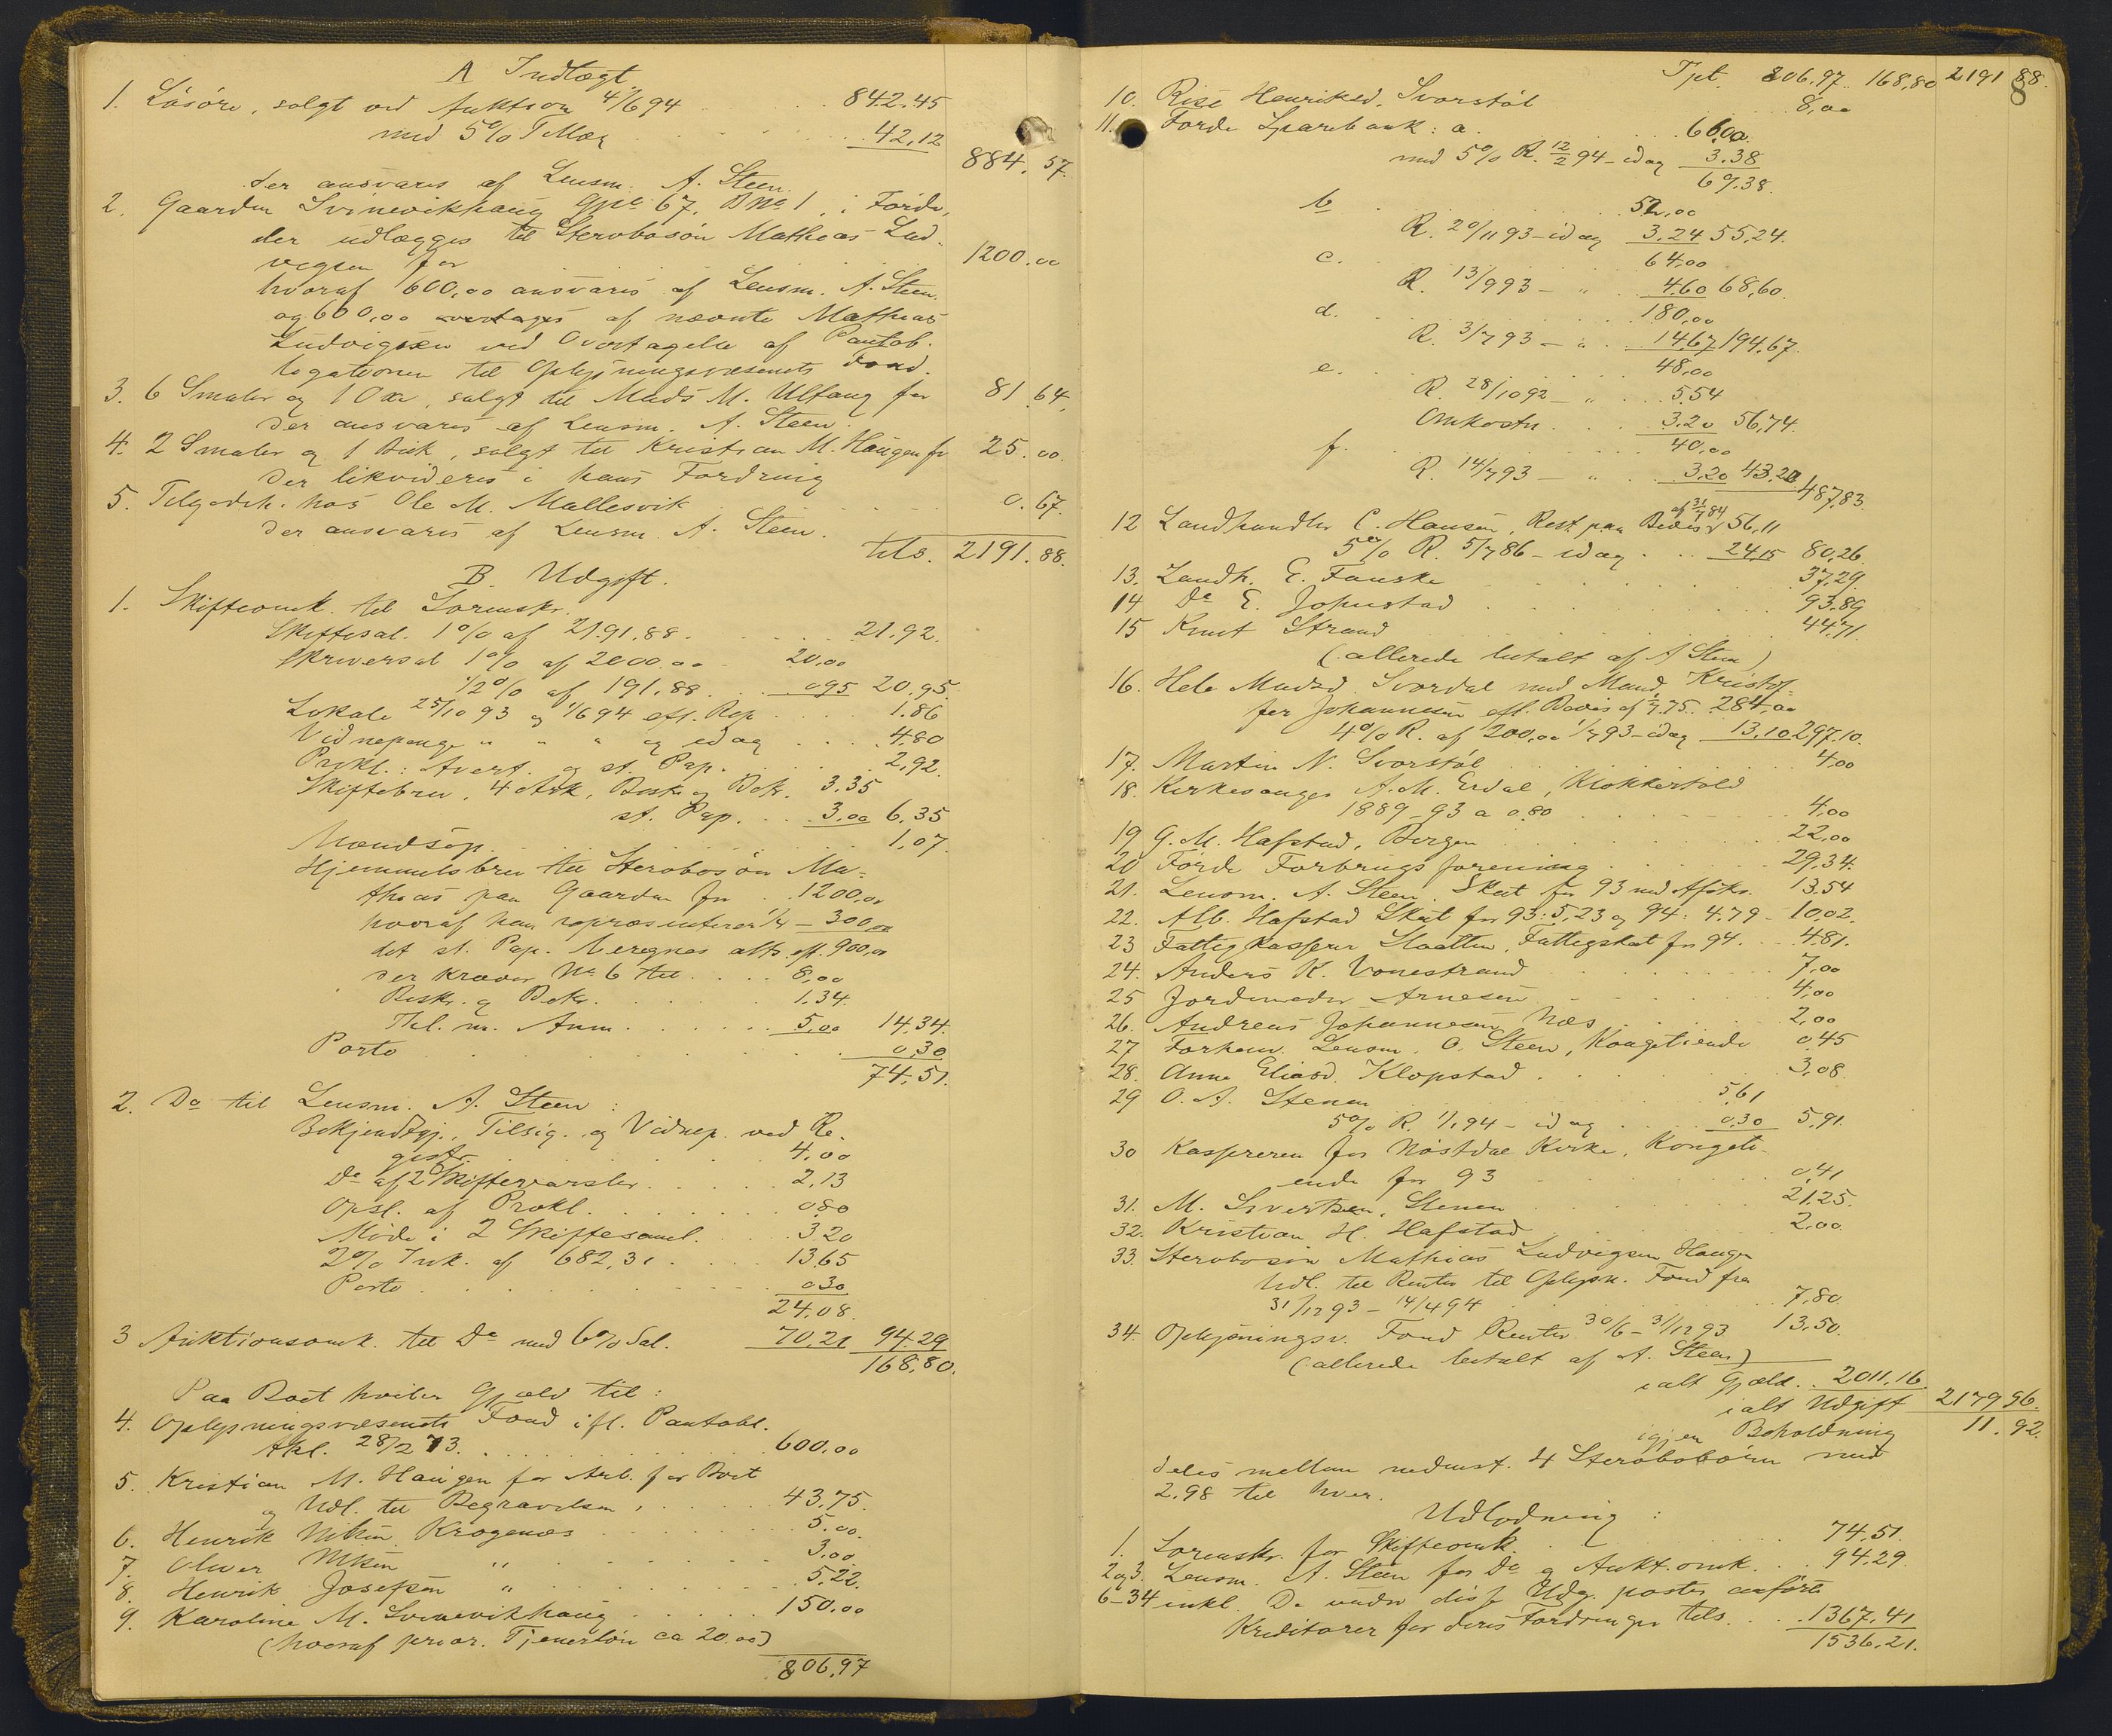 A Indtægt
1. Lösöre, solgt ved Auktion 4/6 94 . . . 842.45
med 5% Tillæg . . . 42,12
884.57.
der ansvares af Lensm. A. Steen.
2. Gaarden Svinevikhaug Gno 67, Bno 1, i Förde,
der udlægges til Sterbosön Mathias Lud-
vigsen for . . . 1200.00
hvoraf 600,00 ansvares af Lensm. A. Steen
og 600,00 overtages af nævnte Mathias
Ludvigsen ved Overtagelse af Pantob-
ligationen til Oplysningsvæsenets Fond.
3. 6 Smaler og 1 Oxe, solgt til Mads M. Ulfaug for 81.64,
der ansvares af Lensm. A. Steen.
4. 2 Smaler og 1 Buk, solgt til Kristian M. Haugen for 25.00.
der likvideres i hans Fordring
5. Tilgodeh. hos Ole M. Mallesvik . . . 0.67.
der ansvares af Lensm. A. Steen.
tils. 2191.88.
B. Udgift.
1. Skifteomk. til Sorenskr.
Skiftesal. 1% af 2191.88. . . . 21.92.
Skriversal 1% af 2000.00 20,00
1/2% af 191.88. . . 0,95 20.95.
Lokale 25/10 93 og 1/6 94 efl. Rep . . . 1.86
Vidnepenge " " " og idag . . . 4,80
Prokl.: Avert. og st. Pap. . . . 2,92.
Skiftebrev, 4 Ark, Beskr og Bekr. 3.35
st. Pap. . . . 3.00 6.35
Mændsop. . . . 1.07.
Hjemmelsbrev til Sterbosön Ma-
thias paa Gaarden for . . 1200,00
hvoraf han repræsenterer 1/4 — 300,00
det st. Pap. beregnes alts. eft. 900,00
der kræver No 6 til . . . 8,00
Beskr. og Bekr. . . . 1.34.
Thl. m. Anm. . . . 5,00 14.34.
Porto . . . 0,30
74,51.
2. Do til Lensm. A. Steen:
Bekjendtgj., Tilsig. og Vidnep. ved Re-
gistr. . . . 4.00
Do af 2 Skiftevarsler . . . 2,13
Opsl. af Prokl. . . . 0,80
Möde i 2 Skiftesaml. . . . 3.20
2% Ink. af 682,31 . . . 13,65
Porto . . . 0,30
24.08.
3 Auktionsomk. til Do med 6% Sal. 70,21 94.29
168,80.
Paa Boet hviler Gjæld til:
4. Oplysningsvæsenets Fond ifl. Pantobl.
tkl. 28/2 73. . . . 600.00
5. Kristian M. Haugen for Arb. for Boet
og Udl. til Begravelsen, . . . 43.75.
6. Henrik Nilsen Krogenæs . . . 5.00.
7. Oliver Nilsen " . . . 3,00.
8. Henrik Josefsen " . . . 5.22.
9. Karoline M. Svinevikhaug . . . 150.00
(hvoraf prior. Tjenerlön ca 20.00)
806,97
Tpt. 806.97. 168,80 2191 88.
8
10. Rise Henriksd. Svorstöl . . . 8,00
11. Förde Sparebank: a. . . . 66,00.
med 5% R. 12/2 94 – idag 3.38
69.38.
b . . . 52,00
R. 20/11 93 – idag 3.24 55,24.
c. . . . 64,00
R. 13/9 93 – " . 4.60 68,60.
d. . . . 180,00
R. 3/7 93 – " . . 14,67 194,67.
e. . . . 48,00
R. 28/10 92 – " . . . 5.54
Omkostn . . . 3.20 56,74.
f. . . . 40,00
R. 14/7 93 – " . . 3,20 43.20 487,83.
12 Landhandler C. Hansen, Rest paa Bevis af 31/7 84 56,11
5% R. 5/7 86 – idag . . . 24,15 80,26.
13. Landh. E. Fauske . . . 37,29
14 Do E. Johnstad . . . 93.89
15 Knut Strand . . . 44,71.
(allerede betalt af A Steen)
16. Hele Madsd. Svordal med Mand Kristof-
fer Johannesen efl. Bevis af 1/7 75. 284,00
4% R. af 200,00 1/7 93 – idag 13,10 297,10.
17. Martin N. Svorstöl . . . 4,00
18. Kirkesanger A. M. Erdal, Klokkertold
1889–93 a 0.80 . . . 4,00
19 G. M. Hafstad, Bergen . . . 22,00
20 Förde Forbrugsforening . . . 29,34.
21. Lensm. A. Steen. Skat for 93 med Afsks. 13.54
22. Alb. Hafstad Skat for 93: 5,23 og 94: 4.79 – 10,02.
23 Fattigkasserer Slaatten, Fattigskat for 94. . . 4.81.
24. Anders K. Vonestrand . . . 7,00
25 Jordemoder Arnesen . . . 4,00
26. Andreas Johannesen Næs . . . 2,00
27 Forhenv. Lensm. O. Steen, Kongetiende 0,45
28. Anne Eliasd. Klopstad . . . 3,08.
29 O. A. Stenen . . . 5,61
5% R. 1/1 94 – idag . . . 0,30 5,91.
30 Kassereren for Nöstdal Kirke, Kongeti-
ende for 93 . . . 0,41
31. M. Sivertsen, Stenen . . . 21,25.
32. Kristian H. Hafstad . . . 2,00.
33. Sterbosön Mathias Ludvigsen Haugen
Udl. til Renter til Oplysn. Fond fra
31/12 93 – 14/4 94 . . . 7,80.
34. Oplysningsv. Fond Renter 30/6 – 31/12 93 13,50.
(allerede betalt af A. Steen)
ialt Gjæld . . 2011,16
ialt Udgift 2179 96.
igjen Beholdning 11.92.
deles mellem nedenst. 4 Sterbobörn med
2.98 til hver.
Udlodning:
1. Sorenskr. for Skifteomk. . . . 74,51.
2 og 3. Lensm. A. Steen for Do og Aukt.omk. . . 94.29.
6–34 inkl. De under disse Udg. poster anförte
Kreditorer for deres Fordringer tils. . . . 1367.41
1536,21.